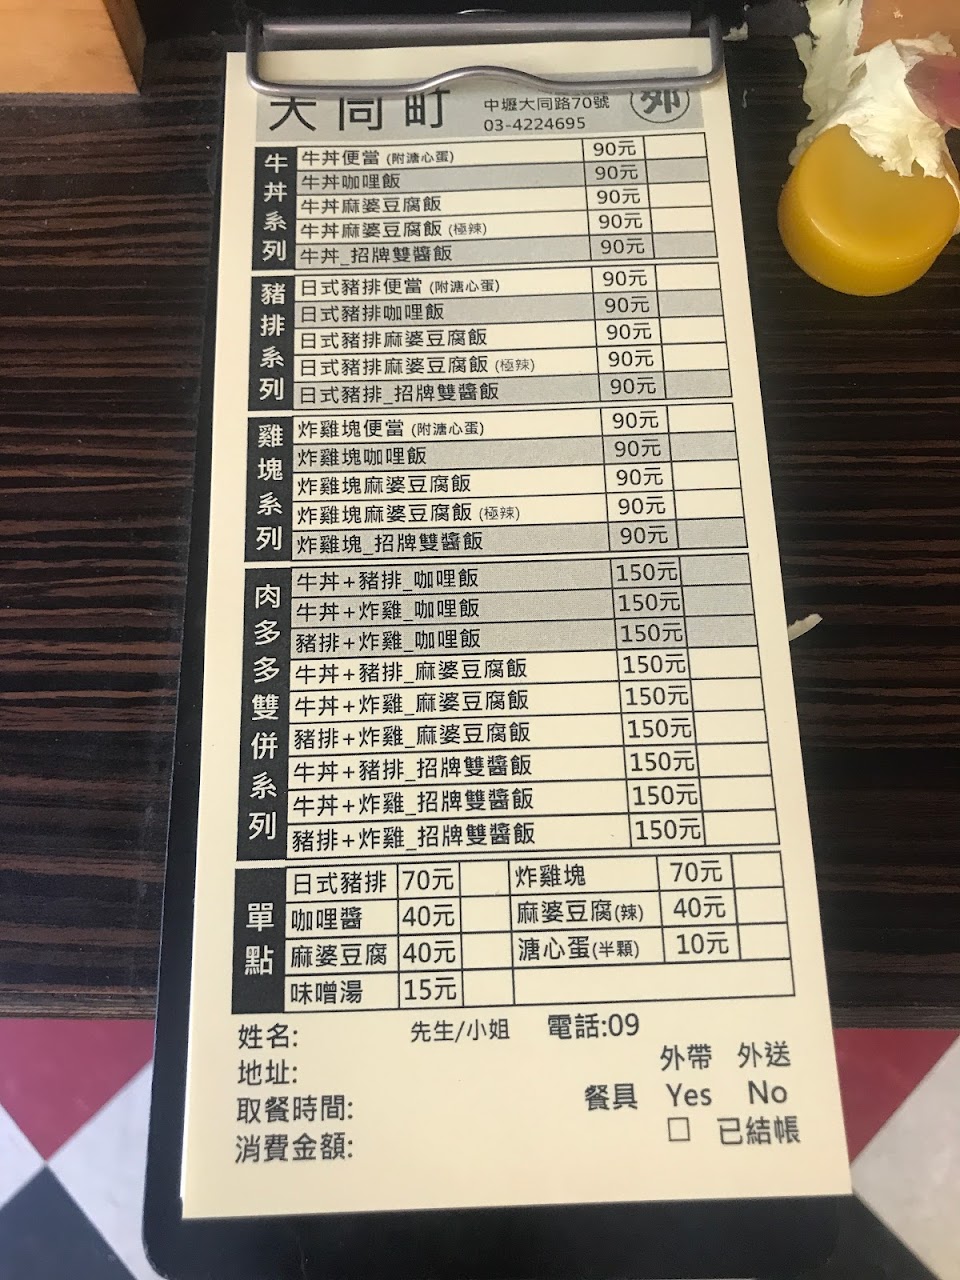 大同町
中壢大同路70號
03-4224695
牛丼系列
牛丼便當 (附溏心蛋) 90元
牛丼咖哩飯 90元
牛丼麻婆豆腐飯 90元
牛丼麻婆豆腐飯 (極辣) 90元
牛丼_招牌雙醬飯 90元
豬排系列
日式豬排便當 (附溏心蛋) 90元
日式豬排咖哩飯 90元
日式豬排麻婆豆腐飯 90元
日式豬排麻婆豆腐飯 (極辣) 90元
日式豬排_招牌雙醬飯 90元
雞塊系列
炸雞塊便當 (附溏心蛋) 90元
炸雞塊咖哩飯 90元
炸雞塊麻婆豆腐飯 90元
炸雞塊麻婆豆腐飯 (極辣) 90元
炸雞塊_招牌雙醬飯 90元
肉多多雙併系列
牛丼+豬排_咖哩飯 150元
牛丼+炸雞_咖哩飯 150元
豬排+炸雞_咖哩飯 150元
牛丼+豬排_麻婆豆腐飯 150元
牛丼+炸雞_麻婆豆腐飯 150元
豬排+炸雞_麻婆豆腐飯 150元
牛丼+豬排_招牌雙醬飯 150元
牛丼+炸雞_招牌雙醬飯 150元
豬排+炸雞_招牌雙醬飯 150元
單點
日式豬排 70元 炸雞塊 70元
咖哩醬 40元 麻婆豆腐(辣) 40元
麻婆豆腐 40元 溏心蛋(半顆) 10元
味噌湯 15元
姓名: 先生/小姐 電話:09
地址: 外帶 外送
取餐時間: 餐具 Yes No
消費金額: □ 已結帳